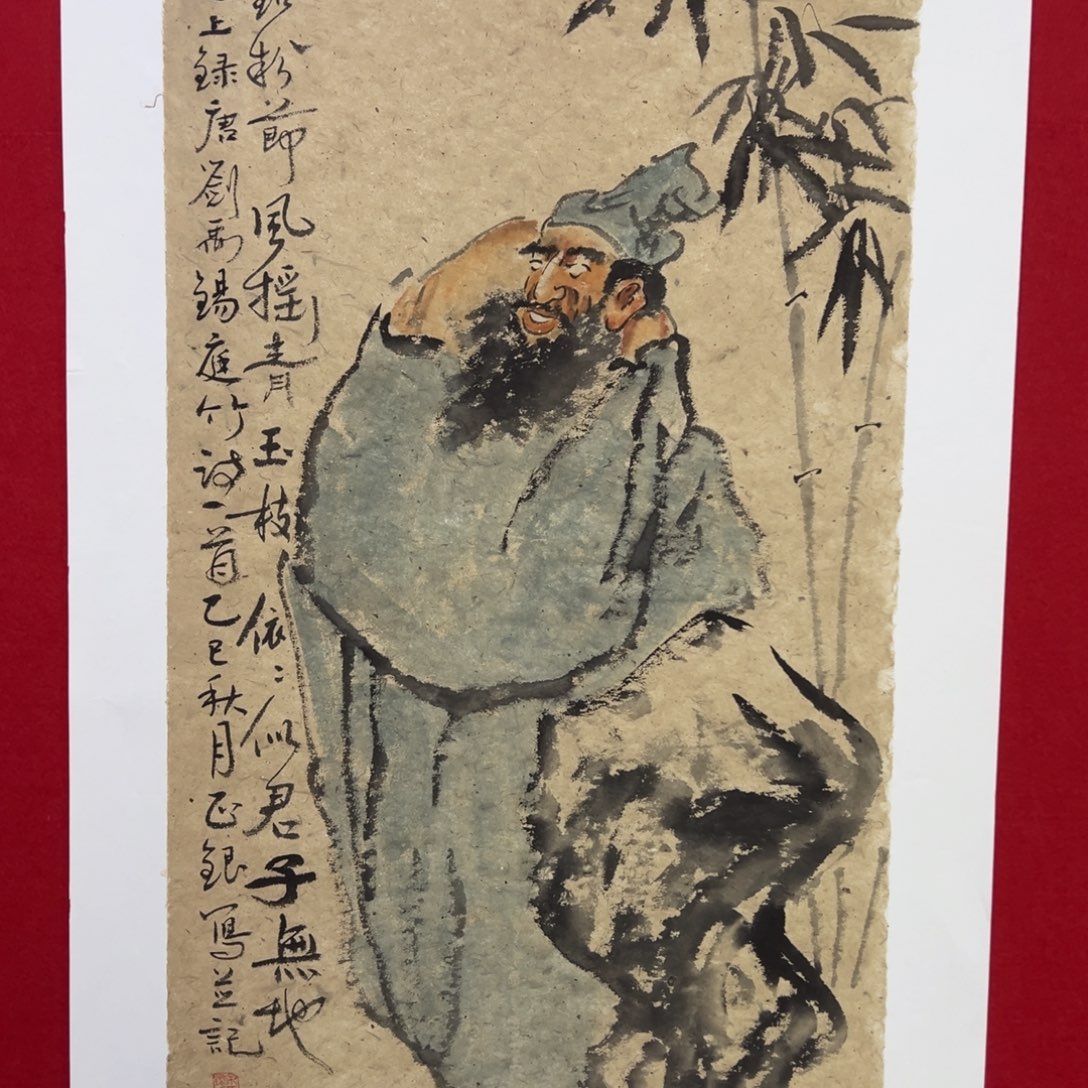 粉節風摇青玉枝依〻似君子無地
上録唐劉禹錫庭竹詩一首乙巳秋月正銀寫並記